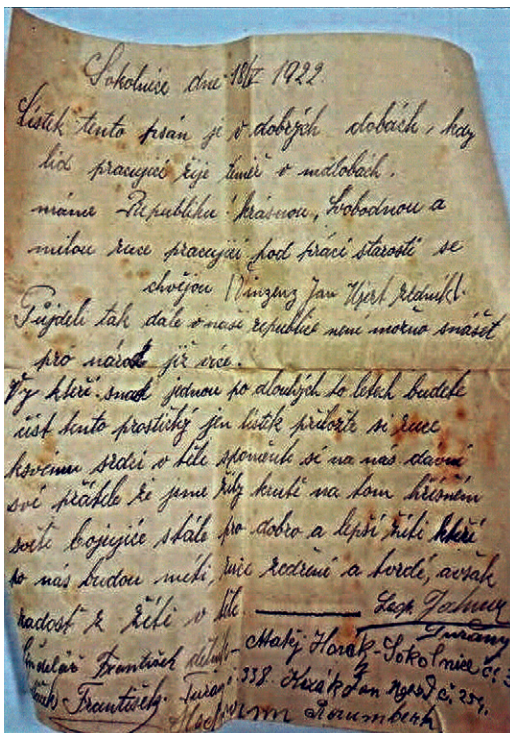 Sokolnice dne 18/V 1922.
Lístek tento psán je v dobrých dobách, kdy
lid pracující žije téměř v mdlobách.
máme Republiku krásnou, Svobodnou a
milou ruce pracující pod prací starostí se
chvějou Vinzenz Jan Ujezd zedník.
Půjdeli tak dále v naší republice není možno snášet
pro národ již více.
Vy kteří snad jednou po dlouhých to letech budete
číst tento prostičký jen lístek přiložte si ruce
ksvému srdci v těle spomeňte si na nás dávní
své přátele že jsme žily krutě na tom hříšném
světě bojujíce stále pro dobro a lepší žití kteří
po nás budou míti, ruce zedřené a tvrdé, avšak
radost z žití v těle.
Turany
František dělník Matěj Horák Sokolnice č.
František Turany 338. Horák Jan Ujezd č. 254.